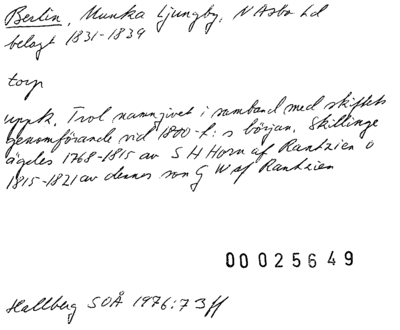 Berlin, Munka Ljungby, N Åsbo hd
belagt 1831-1839
torp
uppk. Trol namngivet i samband med skiftets
genomförande vid 1800-t:s början. Skillinge
ägdes 1768-1815 av S H Horn af Rantzien o
1815-1821 av dennes son G W af Rantzien
00025649
Hallberg SOÅ 1976:73ff